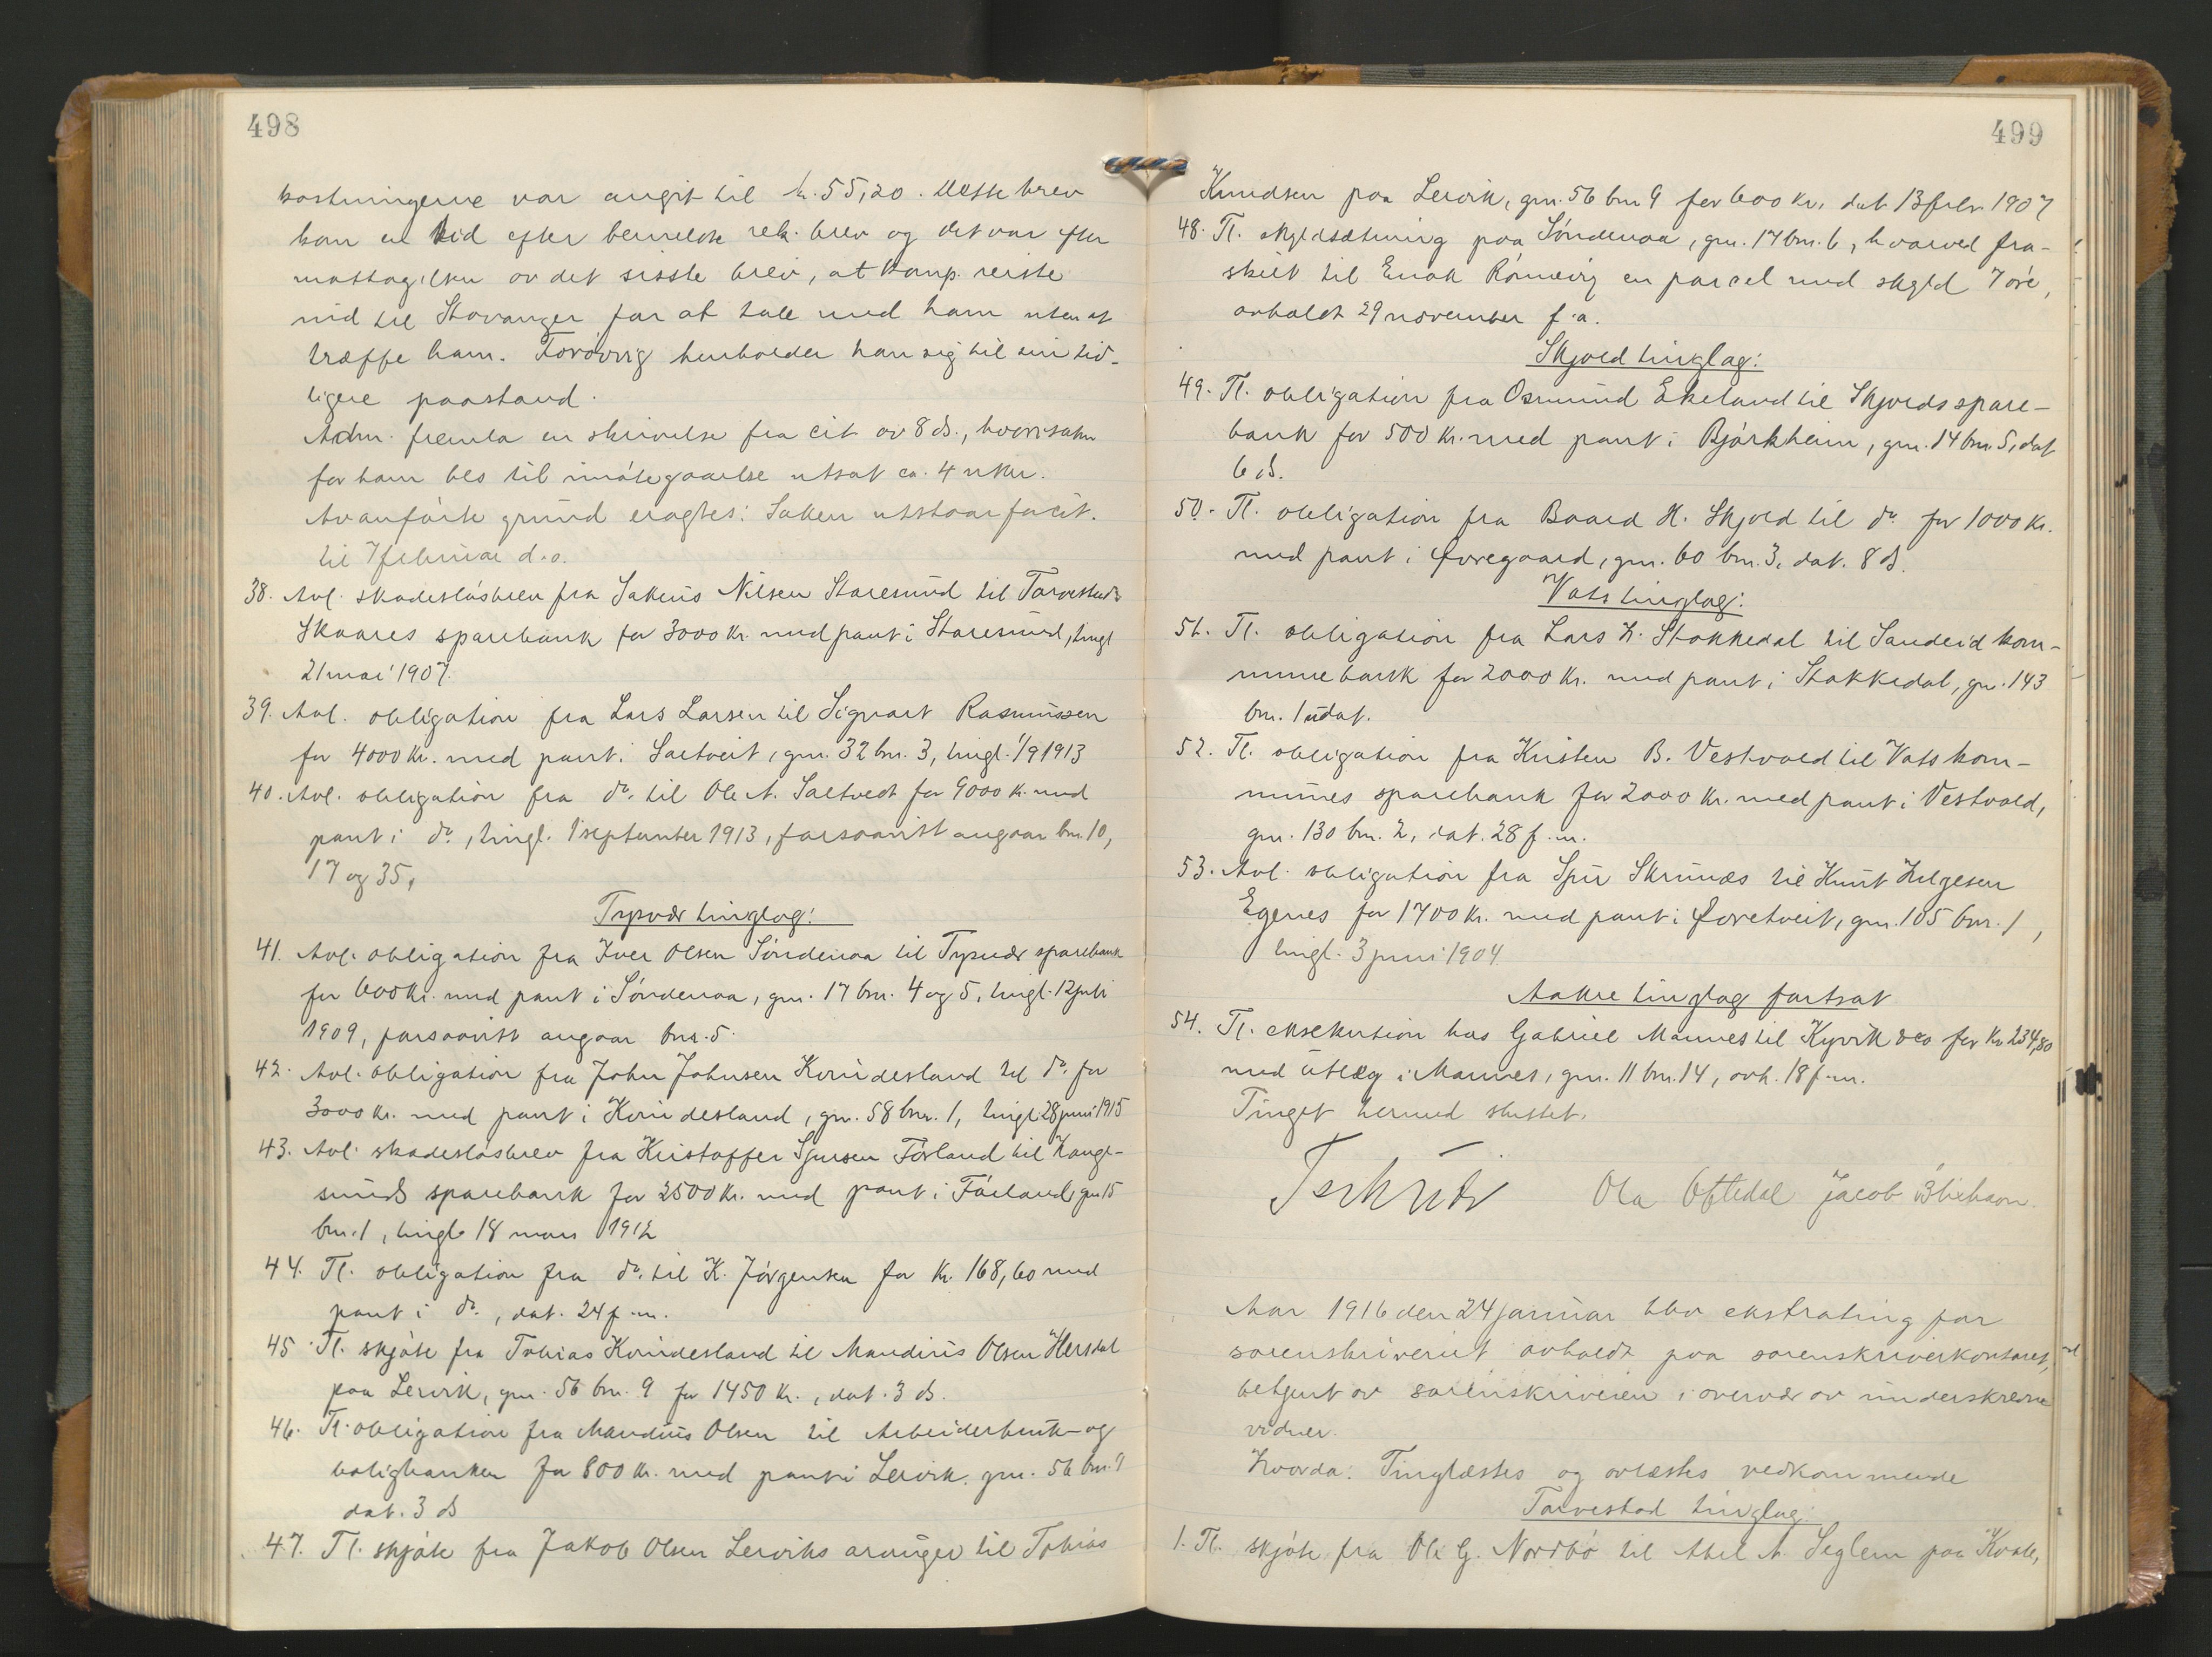 498
kostningerne var angit til kr. 55,20. Dette brev
kom en tid efter bemeldte rek. brev og det var efter
mottagelsen av det sisste brev, at komp. reiste
ind til Stavanger for at tale med ham uten at
træffe ham. Forøvrig henholder han sig til sin tid-
ligere paastand.
Adm. fremla en skrivelse fra cit av 8 ds., hvori saken
for ham bes til imøtegaaelse utsat ca. 4 uker.
Av anførte grund eragtes: Saken utstaar fa cit.
til 7 februar d.a.
38. Avl. skadesløsbrev fra Sakeus Nilsen Staresund til Torvestad
Skaares sparebank for 3000 kr. med pant i Staresund, tingl
21 mai 1907.
39. Avl. obligation fra Lars Larsen til Sigvart Rasmussen
for 4000 kr. med pant i Saltveit, gnr. 32 bnr. 3, tingl. 1/9 1913
40. Avl. obligation fra do. til Ole A. Saltvedt for 9000 kr. med
pant i do., tingl. 1 september 1913, forsaavidt angaar bnr. 10,
17 og 35.
Tysvær tinglag:
41. Avl. obligation fra Iver Olsen Søndenaa til Tysvær sparebank
for 600 kr. med pant i Søndenaa, gnr. 17 bnr. 4 og 5, tingl. 12 juli
1909, forsaavidt angaar bnr. 5.
42. Avl. obligation fra John Johnsen Kvindesland til do. for
3000 kr. med pant i Kvindesland, gnr. 58 bnr. 1, tingl. 28 juni 1915
43. Avl. skadesløsbrev fra Kristoffer Sjursen Førland til Hauge-
sunds sparebank for 2500 kr. med pant i Førland, gnr 15
bnr. 1, tingl. 18 mars 1912
44. Tl. obligation fra do. til K. Jørgensen for kr. 168,60 med
pant i do., dat. 24 f.m.
45 Tl. skjøte fra Tobias Kvindesland til Mandius Olsen Herstal
paa Lervik, gnr. 56 bnr. 9 for 1450 kr., dat. 3 ds.
46. Tl. obligation fra Mandius Olsen til Arbeiderbruk- og
boligbanken for 800 kr. med pant i Lervik, gnr. 56 bnr. 9
dat. 3 ds
47. Tl. skjøte fra Jakob Olsen Lerviks arvinger til Tobias
499
Knudsen paa Lervik, gnr. 56 bnr 9 for 600 kr. dat 13 febr 1907
48. Tl. skyldsætning paa Søndenaa, gnr. 17 bnr. 6, hvorved fra-
skilt til Enok Rønnevig en parcel med skyld 7 øre,
avholdt 29 november f.a.
Skjold tinglag:
49. Tl. obligation fra Osmund Ekeland til Skjolds spare-
bank for 500 kr. med pant i Bjørkheim, gnr. 14 bnr 5, dat
6 ds.
50. Tl. obligation fra Baard H. Skjold til do. for 1000 kr.
med pant i Øvregaard, gnr. 60 bnr. 3, dat. 8 ds.
Vats tinglag:
51. Tl. obligation fra Lars H. Stakkedal til Sandeid kom-
munebank for 2000 kr. med pant i Stakkedal, gnr. 143
bnr. 1 udat.
52. Tl. obligation fra Kristen B. Vestvold til Vats kom-
munes sparebank for 2000 kr. med pant i Vestvold,
gnr. 130 bnr. 2, dat. 28 f.m.
53. Avl. obligation fra Sjur Skrunæs til Knut Helgesen
Egenes for 1700 kr. med pant i Øvretveit, gnr. 105 bnr. 1,
tingl. 3 juni 1904
Aakre tinglag fortsat
54. Tl. eksekution hos Gabriel Mannes til Kyvik & co for kr 234,80
med utlæg i Mannes, gnr. 11 bnr. 14, avh. 18 f.m.
Tinget hermed sluttet.
Ola Oftedal Jacob Blixhavn
Aar 1916 den 24 januar blev ekstrating for
sorenskriveriet avholdt paa sorenskriverkontoret,
betjent av sorenskriveren i overvær av underskrevne
vidner.
Hvorda: Tinglæstes og avlæstes vedkommende
Torvestad tinglag:
1. Tl. skjøte fra Ole G. Nordbø til Abel A. Seglem paa Kvale,